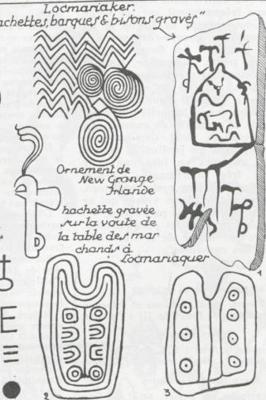 Locmariaker.
achettes, barques & bisons gravés"
Ornement de
New Grange
Irlande
hachette gravée
sur la voute de
la table des mar
chands à
Locmariaquer
1
2
3